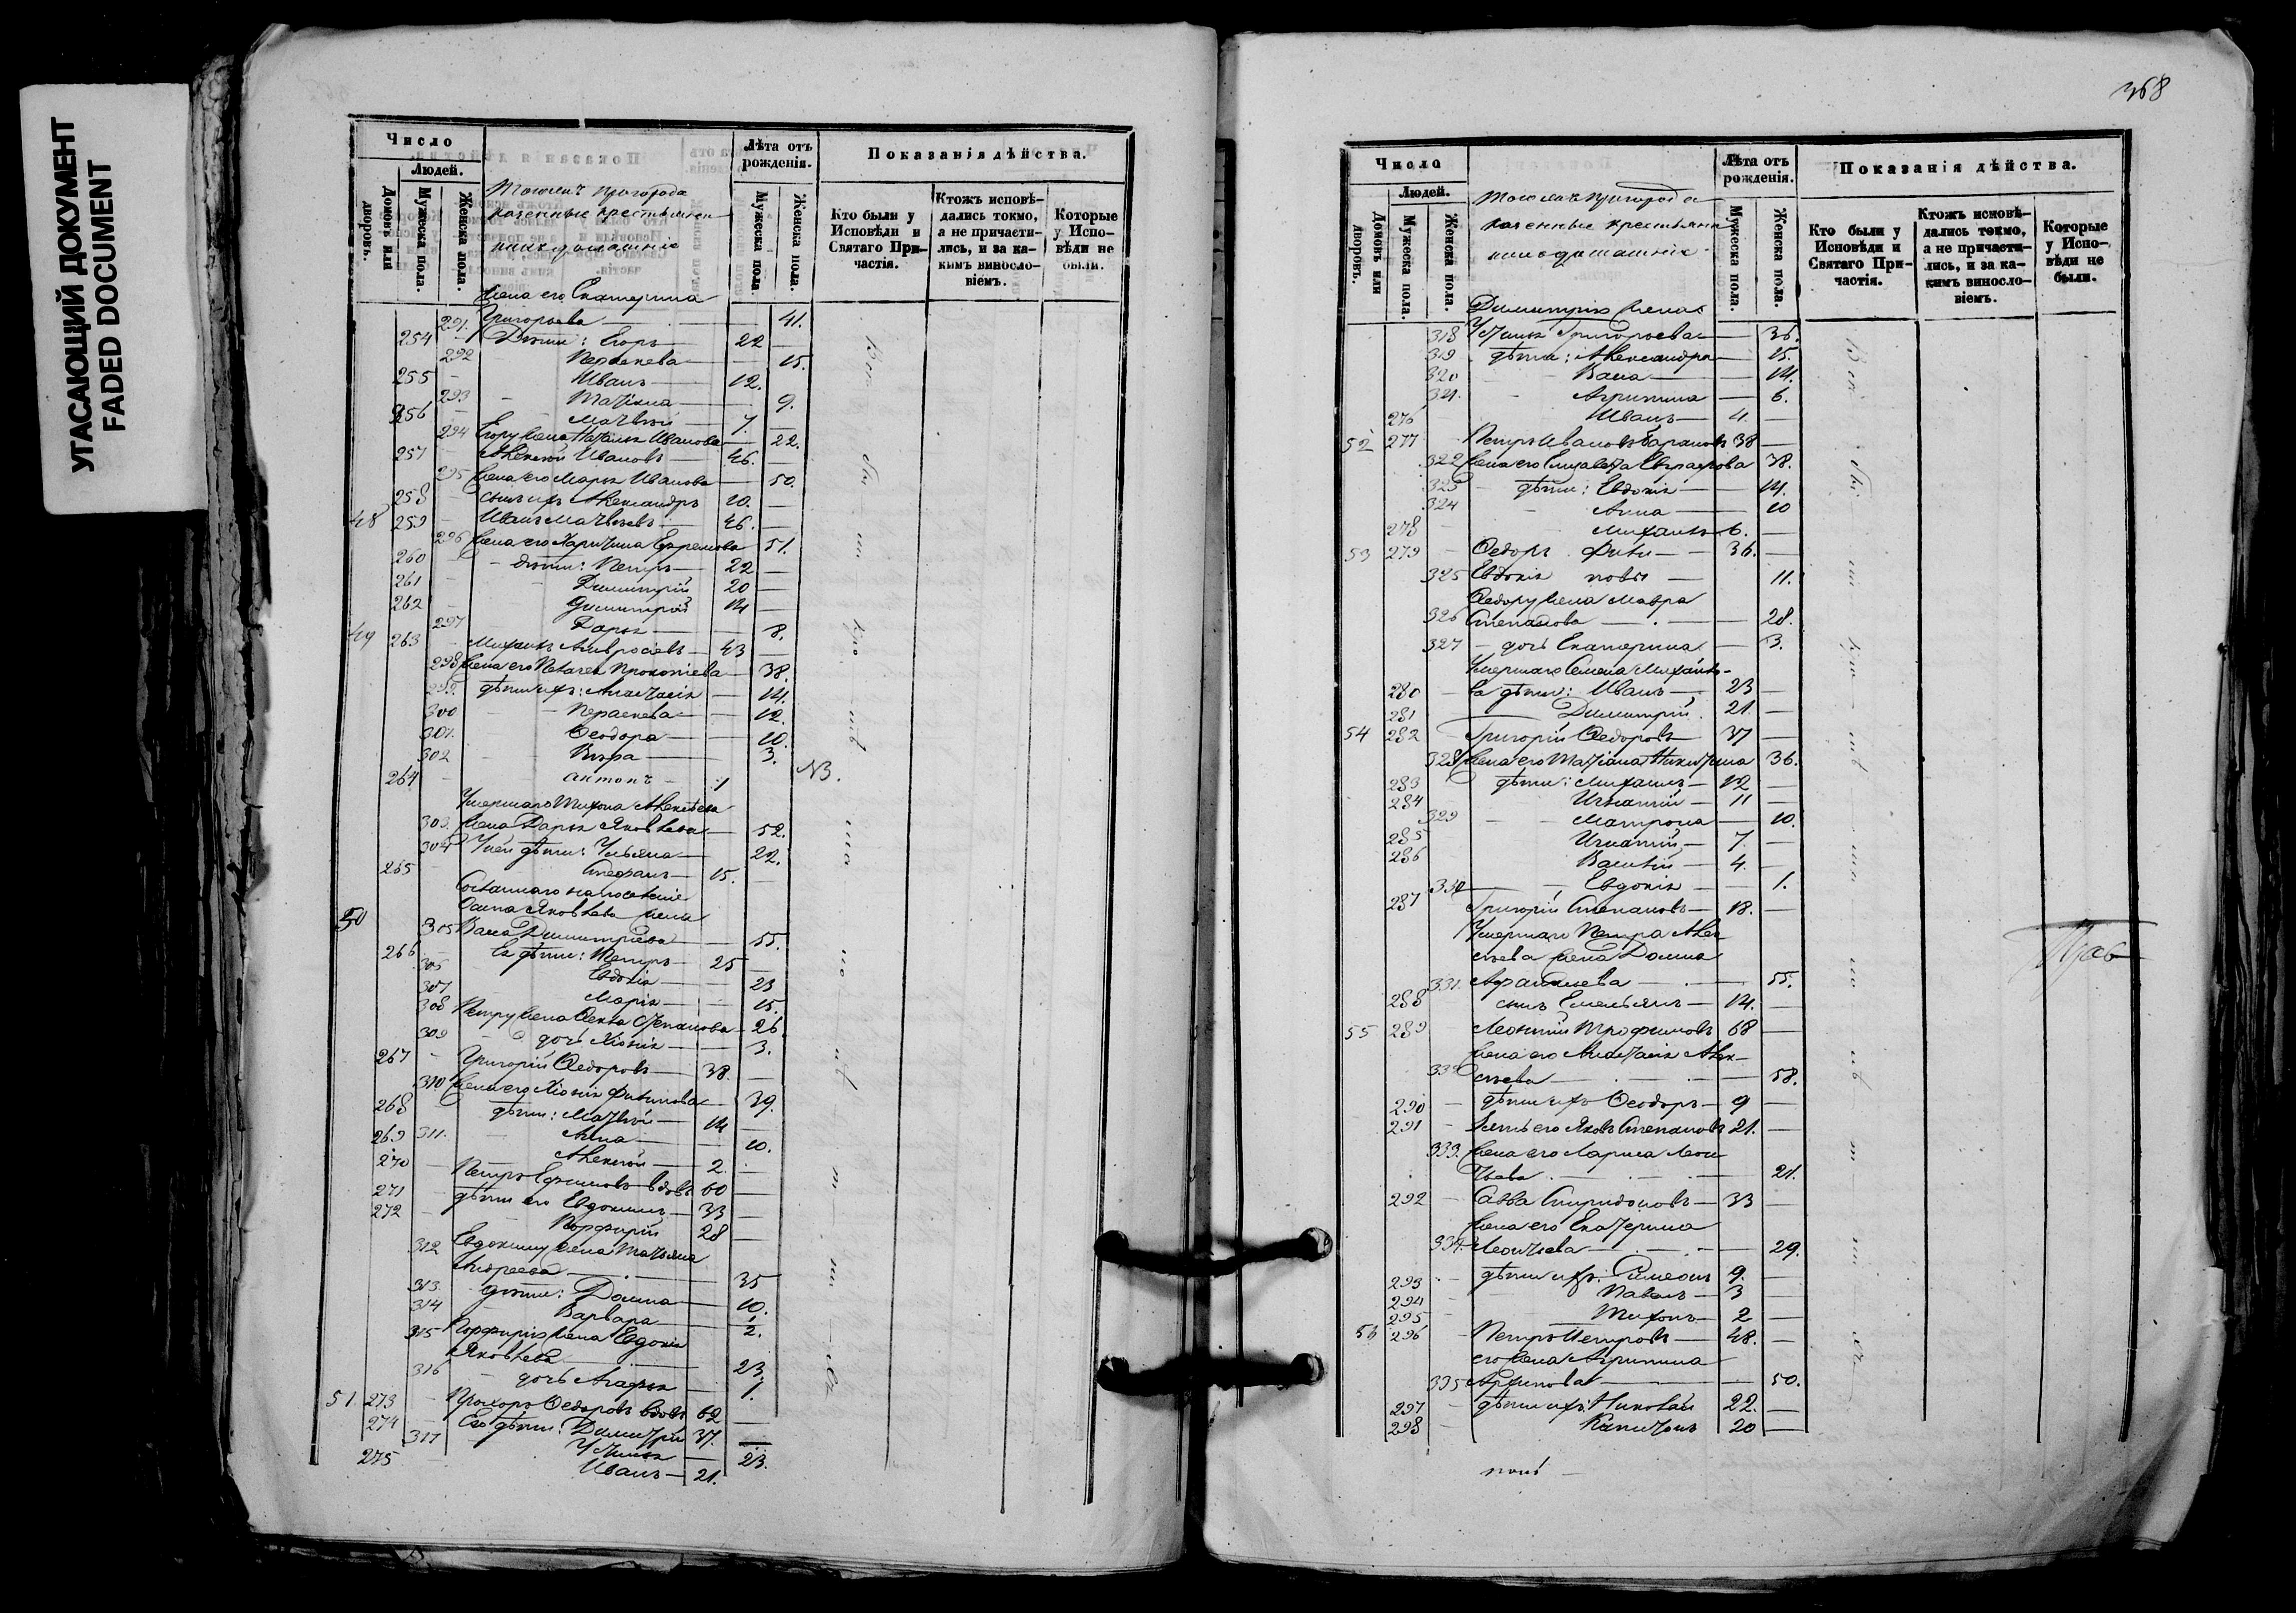 УГАСАЮЩИЙ ДОКУМЕНТ
FADED DOCUMENT
Число
Людей.
Домовъ или дворовъ.
Мужеска пола.
Женска пола.
Тогожъ пригорода
казенные крестьяне
и ихъ домашніе
Лѣта отъ рожденія.
Мужеска пола.
Женска пола.
Показанія дѣйства.
Кто были у Исповѣди и Святаго Причастія.
Ктожъ исповѣдались токмо, а не причастились, и за какимъ винословіемъ.
Которые у Исповѣди не были.
жена его Екатерина
291. Григорьева 41.
254 Дѣти: Егоръ 22
292 Параскева 15.
255 Иванъ 12.
293 Татіана 9.
256 Матвѣй 7.
294 Егору жена Наталья Иванова 22.
257 Алексѣй Ивановъ 46.
295 жена его Марья Иванова 50.
258 сынъ ихъ Александръ 10.
48 259 Иванъ Матвѣевъ 46.
296 жена его Харитина Ефремова 51.
260 дѣти: Петръ 22
261 Димитрій 20
262 Димитрій 14
297 Дарья 8.
49 263 Михаилъ Амвросіевъ 43
298 жена его Пелагея Прокопіева 38.
299. дѣти ихъ: Анастасія 14.
300 Параскева 12.
301. Ѳеодора 10.
302 Вѣра 3.
264 Антонъ 1 NB.
Умершаго Тихона Алексѣева
303. жена Дарья Яковлева 52.
304 У ней дѣти: Ульяна 22.
265 Стефанъ 15.
Сосланнаго на поселеніе
50 Осипа Яковлева жена
305 Васса Димитріева 55.
266 Ея дѣти: Петръ 25
306 Евдокія 23
307 Марія 15.
308 Петру жена Ѳекла Степанова 26
309 дочь Хіонія 3.
267 Григорій Ѳедоровъ 38.
310 жена его Хіонія Филипова 39.
268 дѣти: Матвѣй 14
269 311. Анна 10.
270 Алексѣй 2.
Петръ Ефимовъ вдовъ 60
271 дѣти его Евдокимъ 33
272 Порфирій 28
312 Евдокиму жена Татьяна
Андреева 35
313. дѣти: Домна 10.
314 Варвара 2.
315 Порфирія жена Евдокія
Яковлева 23.
316 дочь Агафья 1.
51. 273 Прохоръ Ѳедоровъ вдовъ 62
274 Его дѣти: Димитрій 37.
317 Устинья 23.
275 Иванъ 21.
368
Число
Людей.
Домовъ или дворовъ.
Мужеска пола.
Женска пола.
Тогожъ пригорода
казенные крестьяне
и ихъ домашніе
Лѣта отъ рожденія.
Мужеска пола.
Женска пола.
Показанія дѣйства.
Кто были у Исповѣди и Святаго Причастія.
Ктожъ исповѣдались токмо, а не причастились, и за какимъ винословіемъ.
Которые у Исповѣди не были.
Димитрія жена
318 Устинья Григорьева 36.
319 дѣти: Александра 15.
320 Васса 14.
321. Агрипина 6.
276 Иванъ 4.
52 277 Петръ Ивановъ 38
322 жена его Елизавета Евграфова 38.
323 дѣти: Евдокія 14.
324 Анна 10
278 Михаилъ 6.
53 279 Ѳедоръ Фили- 36.
325 Евдокія повы 11.
Ѳедору жена Мавра
326 Степанова 28.
327 дочь Екатерина 3.
Умершаго Семена Михайло-
280 ва дѣти: Иванъ 23
281 Димитрій 21.
54 282 Григорій Ѳедоровъ 37
328 жена его Татіана Никитина 36.
283 дѣти: Михаилъ 12
284 Игнатій 11
329 Матрона 10.
285 Игнатій 7.
286 Василій 4.
330 Евдокія 1.
287 Григорій Степановъ 18.
Умершаго Петра Алек-
сѣева жена Домна
331. Афанасьева 55.
288 сынъ Емельянъ 14.
55 289 Леонтій Трофимовъ 68
жена его Анастасія Алек-
332 сѣева 58.
290 дѣти ихъ Ѳеодоръ 9
291 Зять его Яковъ Степановъ 21.
333. жена его Лариса Леон-
тьева 21.
292 Савва Спиридоновъ 33
жена его Екатерина
334. Леонтьева 29.
293 дѣти ихъ: Симеонъ 9.
294 Павелъ 3
295 Тихонъ 2
56 296 Петръ Петровъ 48.
его жена Агрипина
335 50.
297 дѣти ихъ: Николай 22.
298 Капитонъ 20